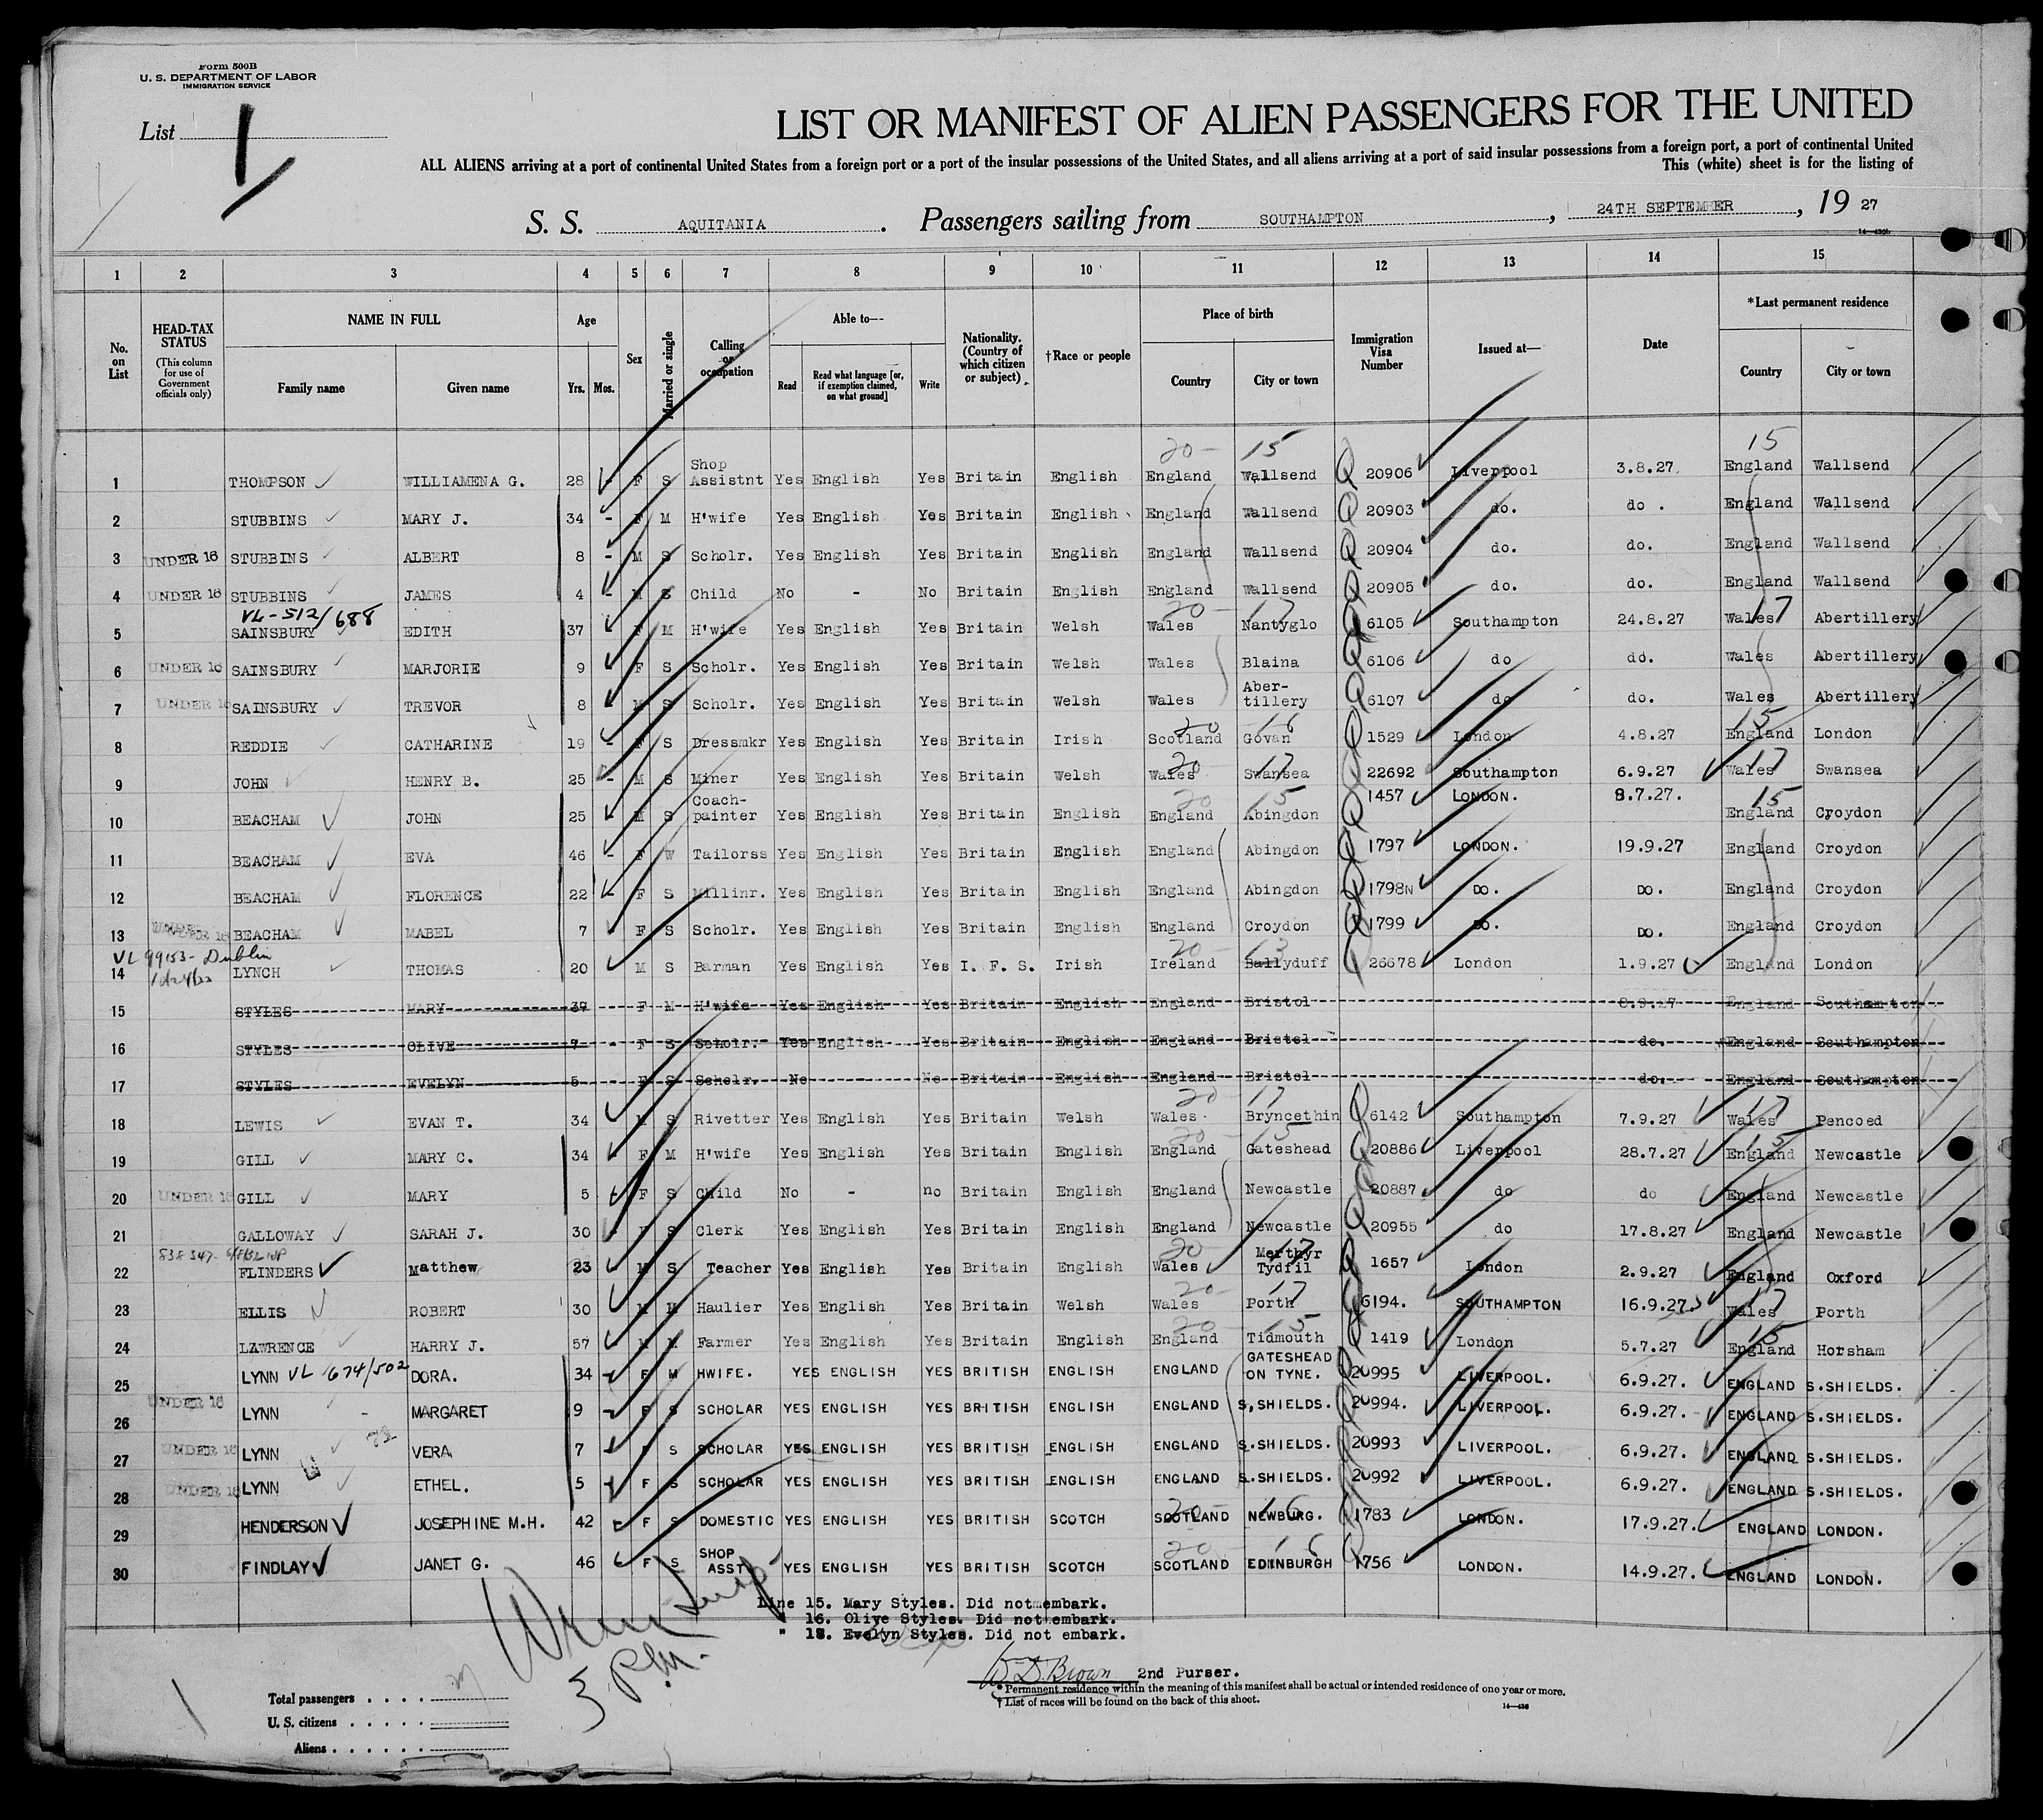 Form 500B
U. S. DEPARTMENT OF LABOR
IMMIGRATION SERVICE
List 1
LIST OR MANIFEST OF ALIEN PASSENGERS FOR THE UNITED
ALL ALIENS arriving at a port of continental United States from a foreign port or a port of the insular possessions of the United States, and all aliens arriving at a port of said insular possessions from a foreign port, a port of continental United
This (white) sheet is for the listing of
S. S. AQUITANIA. Passengers sailing from SOUTHAMPTON, 24TH SEPTEMBER, 19 27
14—430b
1 2 3 4 5 6 7 8 9 10 11 12 13 14 15
No. on List
HEAD-TAX STATUS (This column for use of Government officials only)
NAME IN FULL Family name Given name
Age Yrs. Mos.
Sex
Married or single
Calling or occupation
Able to— Read Read what language [or, if exemption claimed, on what ground] Write
Nationality. (Country of which citizen or subject)
†Race or people
Place of birth Country City or town
Immigration Visa Number
Issued at—
Date
*Last permanent residence Country City or town
20- 15 15
1 THOMPSON WILLIAMENA G. 28 - F S Shop Assistnt Yes English Yes Britain English England Wallsend 20906 Liverpool 3.8.27. England Wallsend
2 STUBBINS MARY J. 34 - F M H'wife Yes English Yes Britain English England Wallsend 20903 do. do . England Wallsend
3 UNDER 16 STUBBINS ALBERT 8 - M S Scholr. Yes English Yes Britain English England Wallsend 20904 do. do. England Wallsend
4 UNDER 16 STUBBINS JAMES 4 M S Child No - No Britain English England Wallsend 20905 do. do. England Wallsend
VL-512/688 20- 17 17
5 SAINSBURY EDITH 37 F M H'wife Yes English Yes Britain Welsh Wales Nantyglo 6105 Southampton 24.8.27 Wales Abertillery
6 UNDER 16 SAINSBURY MARJORIE 9 F S Scholr. Yes English Yes Britain Welsh Wales Blaina 6106 do do. Wales Abertillery
7 UNDER 16 SAINSBURY TREVOR 8 M S Scholr. Yes English Yes Britain Welsh Wales Aber-tillery 6107 do do. Wales Abertillery
20 16 15
8 REDDIE CATHARINE 19 - F S Dressmkr Yes English Yes Britain Irish Scotland Govan 1529 London 4.8.27 England London
20 17 17
9 JOHN HENRY B. 25 - M S Miner Yes English Yes Britain Welsh Wales Swansea 22692 Southampton 6.9.27 Wales Swansea
20 15 15
10 BEACHAM JOHN 25 M S Coach-painter Yes English Yes Britain English England Abingdon 1457 LONDON. 8.7.27. England Croydon
11 BEACHAM EVA 46 - F W Tailorss Yes English Yes Britain English England Abingdon 1797 LONDON. 19.9.27 England Croydon
12 BEACHAM FLORENCE 22 F S Millinr. Yes English Yes Britain English England Abingdon 1798N DO. DO. England Croydon
13 UNDER 16 BEACHAM MABEL 7 - F S Scholr. Yes English Yes Britain English England Croydon 1799 DO. DO. England Croydon
VL 99153- Dublin 20- 13
14 LYNCH THOMAS 20 M S Barman Yes English Yes I. F. S. Irish Ireland Ballyduff 26678 London 1.9.27 England London
15 STYLES MARY 37 F M H'wife Yes English Yes Britain English England Bristol 8.9.27 England Southampton
16 STYLES OLIVE 7 - F S Scholr. Yes English Yes Britain English England Bristol do. England Southampton
17 STYLES EVELYN 5 F S Scholr. No No Britain English England Bristol do. England Southampton
20- 17 17
18 LEWIS EVAN T. 34 M S Rivetter Yes English Yes Britain Welsh Wales Bryncethin 6142 Southampton 7.9.27 Wales Pencoed
20- 15 15
19 GILL MARY C. 34 F M H'wife Yes English Yes Britain English England Gateshead 20886 Liverpool 28.7.27 England Newcastle
20 UNDER 16 GILL MARY 5 F S Child No - no Britain English England Newcastle 20887 do do England Newcastle
21 GALLOWAY SARAH J. 30 F S Clerk Yes English Yes Britain English England Newcastle 20955 do 17.8.27 England Newcastle
20 17
22 FLINDERS Matthew 23 M S Teacher Yes English Yes Britain English Wales Merthyr Tydfil 1657 London 2.9.27 England Oxford
20- 17 17
23 ELLIS ROBERT 30 M M Haulier Yes English Yes Britain Welsh Wales Porth 6194. SOUTHAMPTON 16.9.27. Wales Porth
20- 15 15
24 LAWRENCE HARRY J. 57 M M Farmer Yes English Yes Britain English England Tidmouth 1419 London 5.7.27 England Horsham
25 LYNN VL 674/502 DORA. 34 - F M HWIFE. YES ENGLISH YES BRITISH ENGLISH ENGLAND GATESHEAD ON TYNE. 20995 LIVERPOOL. 6.9.27. ENGLAND S.SHIELDS.
26 UNDER 16 LYNN - MARGARET 9 - F S SCHOLAR YES ENGLISH YES BRITISH ENGLISH ENGLAND S,SHIELDS. 20994. LIVERPOOL. 6.9.27. ENGLAND S.SHIELDS.
27 UNDER 16 LYNN VERA 7 - F S SCHOLAR YES ENGLISH YES BRITISH ENGLISH ENGLAND S.SHIELDS. 20993 LIVERPOOL. 6.9.27. ENGLAND S.SHIELDS.
28 UNDER 16 LYNN ETHEL. 5 - F S SCHOLAR YES ENGLISH YES BRITISH ENGLISH ENGLAND S.SHIELDS. 20992 LIVERPOOL. 6.9.27. ENGLAND S.SHIELDS.
20- 16
29 HENDERSON JOSEPHINE M.H. 42 - F S DOMESTIC YES ENGLISH YES BRITISH SCOTCH SCOTLAND NEWBURG. 1783 LONDON. 17.9.27. ENGLAND LONDON.
20- 16
30 FINDLAY JANET G. 46 - F S SHOP ASST YES ENGLISH YES BRITISH SCOTCH SCOTLAND EDINBURGH 1756 LONDON. 14.9.27. ENGLAND LONDON.
Line 15. Mary Styles. Did not embark.
" 16. Olive Styles. Did not embark.
" 18. Evelyn Styles. Did not embark.
W. D. Brown 2nd Purser.
* Permanent residence within the meaning of this manifest shall be actual or intended residence of one year or more.
† List of races will be found on the back of this sheet.
14—436
Total passengers . . . .
U. S. citizens . . . . .
Aliens . . . . . .